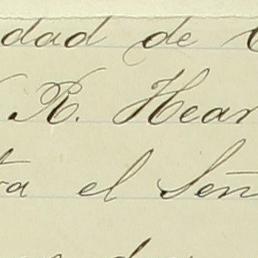 dad de
R. Hear
ra el Señ